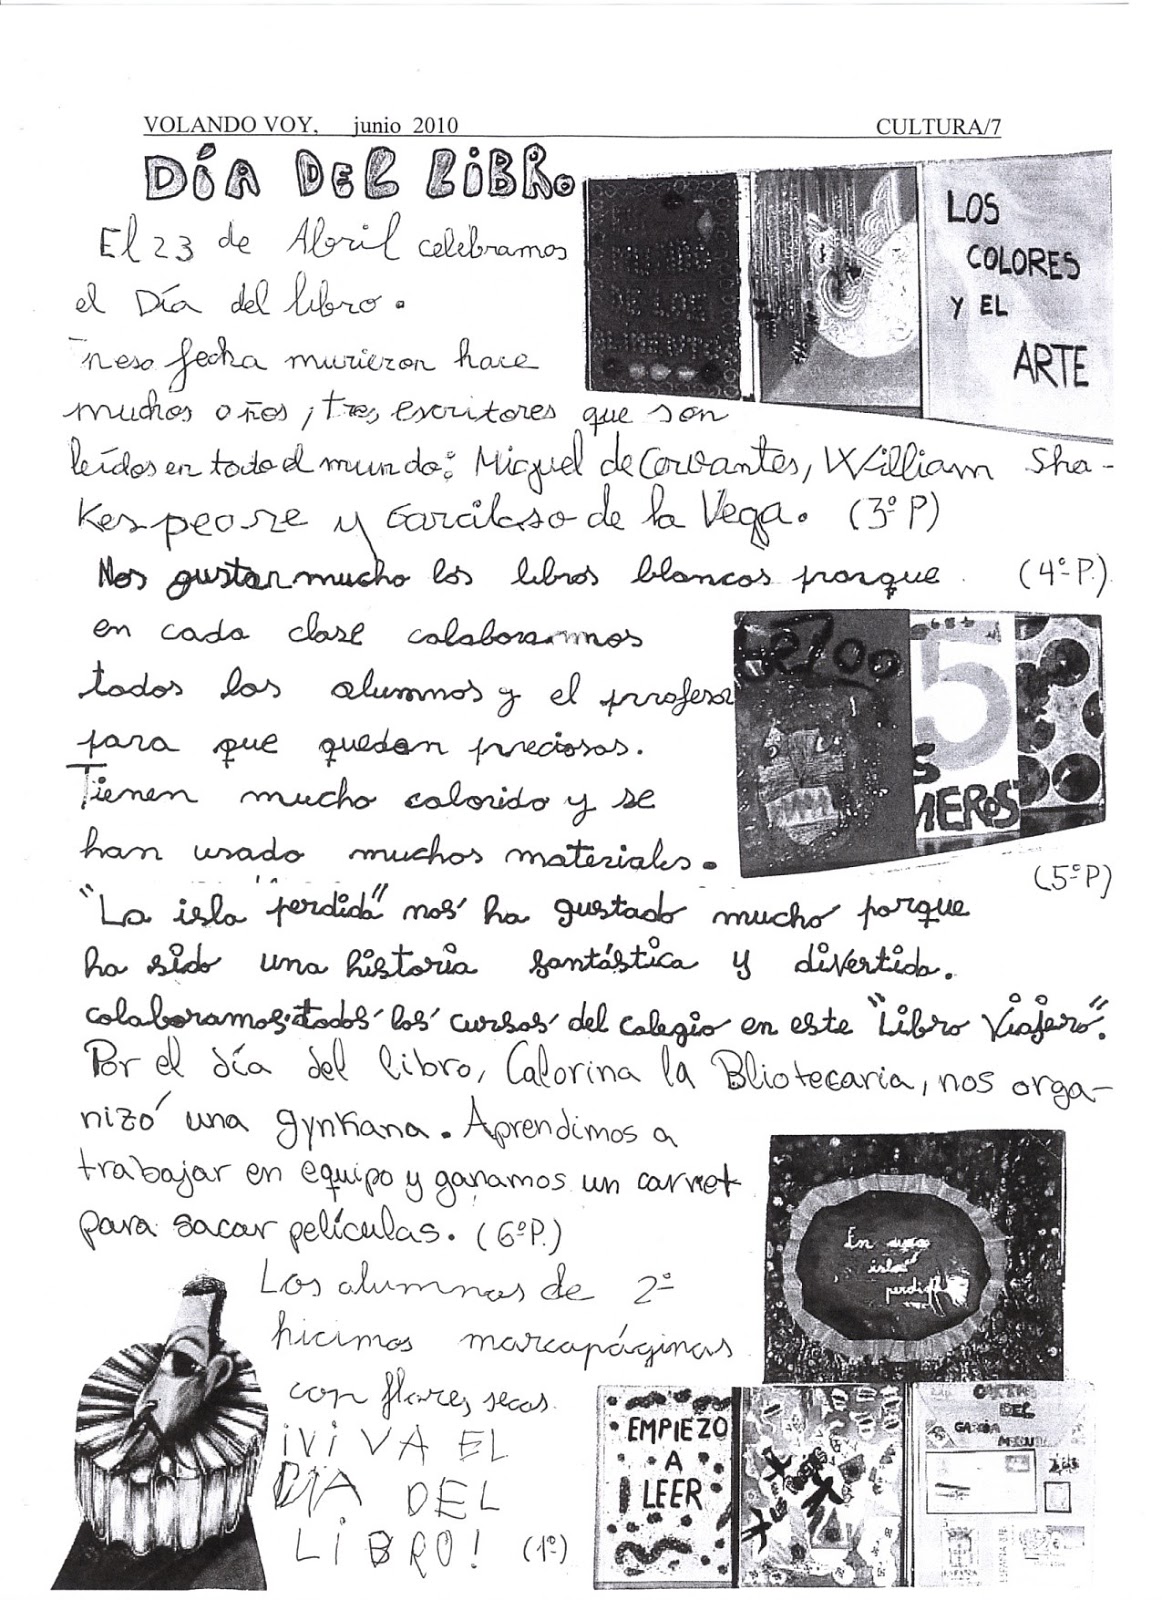 VOLANDO VOY, junio 2010 CULTURA/7
DÍA DEL LIBRO
El 23 de Abril celebramos
el Día del libro.
n esa fecha murieron hace
muchos años, tres escritores que son
leídos en todo el mundo: Miguel de Cervantes, William Sha-
kespeare y Garcilaso de la Vega. (3º P)
Nos gustan mucho los libros blancos porque (4º P.)
en cada clase colaboramos
todos los alumnos y el profesor
para que queden preciosos.
Tienen mucho colorido y se
han usado muchos materiales.
(5º P)
"La isla perdida" nos ha gustado mucho porque
ha sido una historia fantástica y divertida.
colaboramos todos los cursos del colegio en este "Libro Viajero".
Por el día del libro, Calorina la Bliotecaria, nos orga-
nizó una gynkana. Aprendimos a
trabajar en equipo y ganamos un carnet
para sacar películas. (6º P.)
Los alumnos de 2º
hicimos marcapáginas
con flores secas.
¡VIVA EL
DÍA DEL
LIBRO! (1º)
LOS
COLORES
Y EL
ARTE
5
MEROS
En una
isla
perdida
EMPIEZO
A
LEER
CARTAS
DEL
GARCÍA